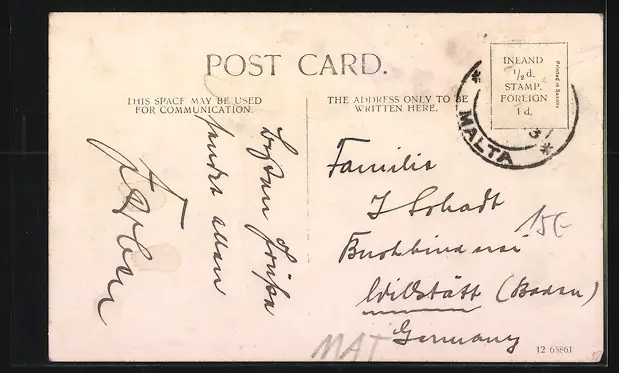 POST CARD.
THIS SPACE MAY BE USED
FOR COMMUNICATION.
THE ADDRESS ONLY TO BE
WRITTEN HERE.
INLAND
½ d.
STAMP.
FOREIGN
1 d.
Printed in Saxony
MALTA
Besten Grüße
sendet allen
Familie
J Schadt
Buchbinderei
Willstätt (Baden)
Germany
15,-
MAT
12 63861